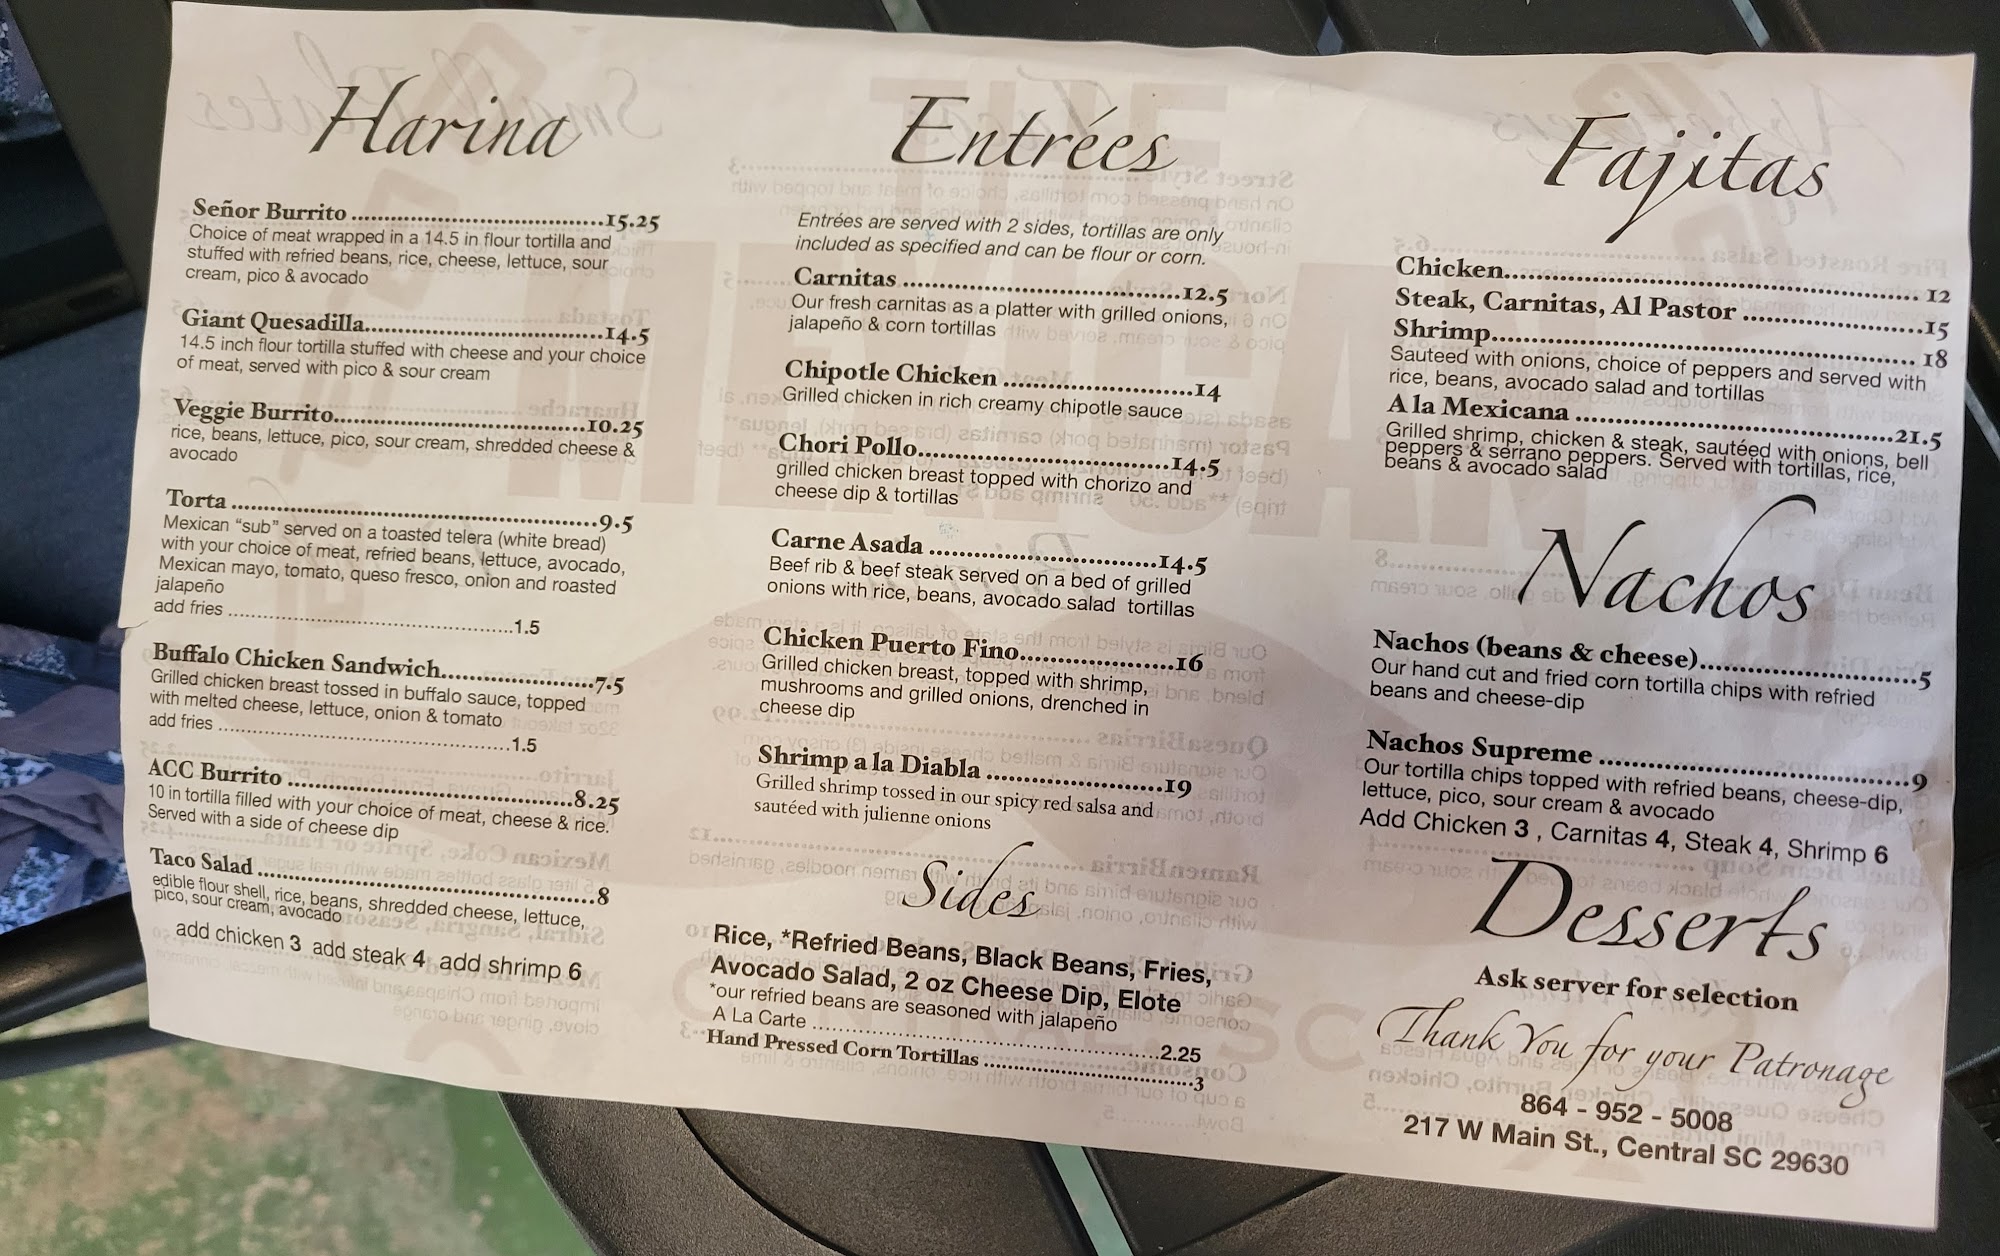 Harina
Señor Burrito ..........15.25
Choice of meat wrapped in a 14.5 in flour tortilla and
stuffed with refried beans, rice, cheese, lettuce, sour
cream, pico & avocado
Giant Quesadilla..........14.5
14.5 inch flour tortilla stuffed with cheese and your choice
of meat, served with pico & sour cream
Veggie Burrito..........10.25
rice, beans, lettuce, pico, sour cream, shredded cheese &
avocado
Torta ..........9.5
Mexican “sub” served on a toasted telera (white bread)
with your choice of meat, refried beans, lettuce, avocado,
Mexican mayo, tomato, queso fresco, onion and roasted
jalapeño
add fries ..........1.5
Buffalo Chicken Sandwich..........7.5
Grilled chicken breast tossed in buffalo sauce, topped
with melted cheese, lettuce, onion & tomato
add fries ..........1.5
ACC Burrito ..........8.25
10 in tortilla filled with your choice of meat, cheese & rice.
Served with a side of cheese dip
Taco Salad ..........8
edible flour shell, rice, beans, shredded cheese, lettuce,
pico, sour cream, avocado
add chicken 3 add steak 4 add shrimp 6
Entrées
Entrées are served with 2 sides, tortillas are only
included as specified and can be flour or corn.
Carnitas ..........12.5
Our fresh carnitas as a platter with grilled onions,
jalapeño & corn tortillas
Chipotle Chicken ..........14
Grilled chicken in rich creamy chipotle sauce
Chori Pollo..........14.5
grilled chicken breast topped with chorizo and
cheese dip & tortillas
Carne Asada ..........14.5
Beef rib & beef steak served on a bed of grilled
onions with rice, beans, avocado salad tortillas
Chicken Puerto Fino..........16
Grilled chicken breast, topped with shrimp,
mushrooms and grilled onions, drenched in
cheese dip
Shrimp a la Diabla ..........19
Grilled shrimp tossed in our spicy red salsa and
sautéed with julienne onions
Sides
Rice, *Refried Beans, Black Beans, Fries,
Avocado Salad, 2 oz Cheese Dip, Elote
*our refried beans are seasoned with jalapeño
A La Carte ..........2.25
Hand Pressed Corn Tortillas ..........3
Fajitas
Chicken.......... 12
Steak, Carnitas, Al Pastor ..........15
Shrimp.......... 18
Sauteed with onions, choice of peppers and served with
rice, beans, avocado salad and tortillas
A la Mexicana ..........21.5
Grilled shrimp, chicken & steak, sautéed with onions, bell
peppers & serrano peppers. Served with tortillas, rice,
beans & avocado salad
Nachos
Nachos (beans & cheese)..........5
Our hand cut and fried corn tortilla chips with refried
beans and cheese-dip
Nachos Supreme ..........9
Our tortilla chips topped with refried beans, cheese-dip,
lettuce, pico, sour cream & avocado
Add Chicken 3 , Carnitas 4, Steak 4, Shrimp 6
Desserts
Ask server for selection
Thank You for your Patronage
864 - 952 - 5008
217 W Main St., Central SC 29630